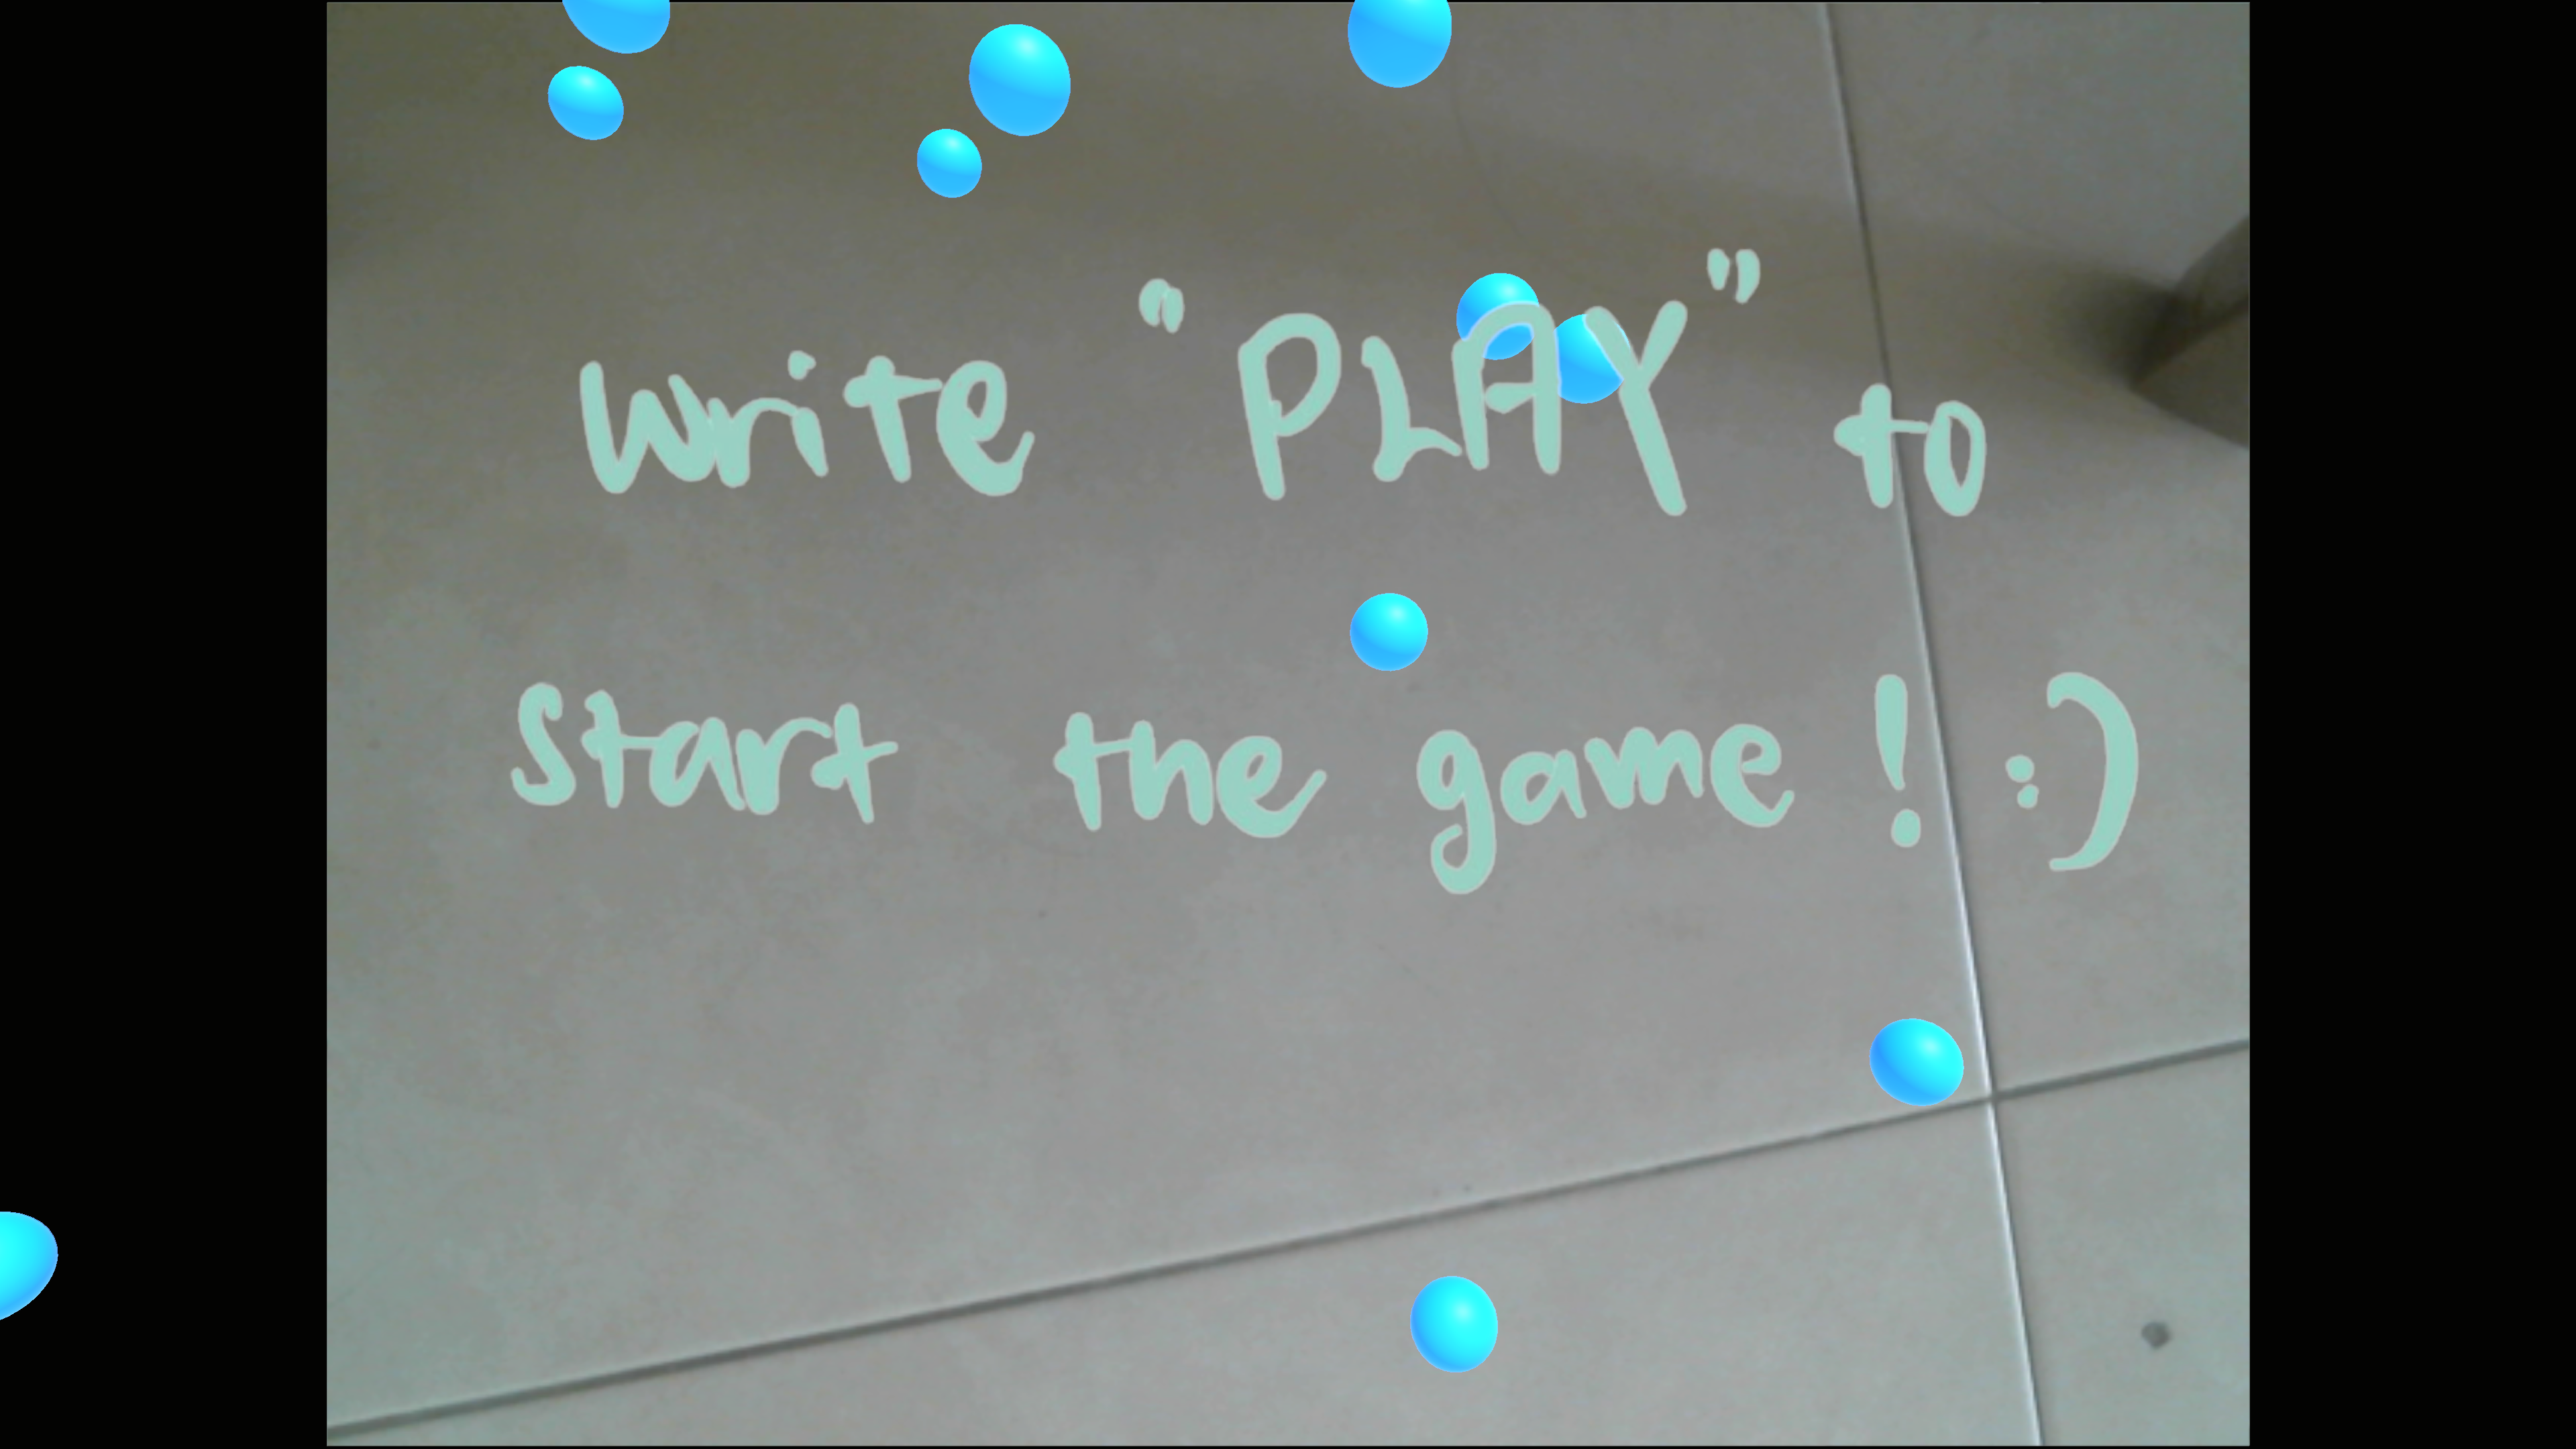 write "PLAY" to
start the game! :)